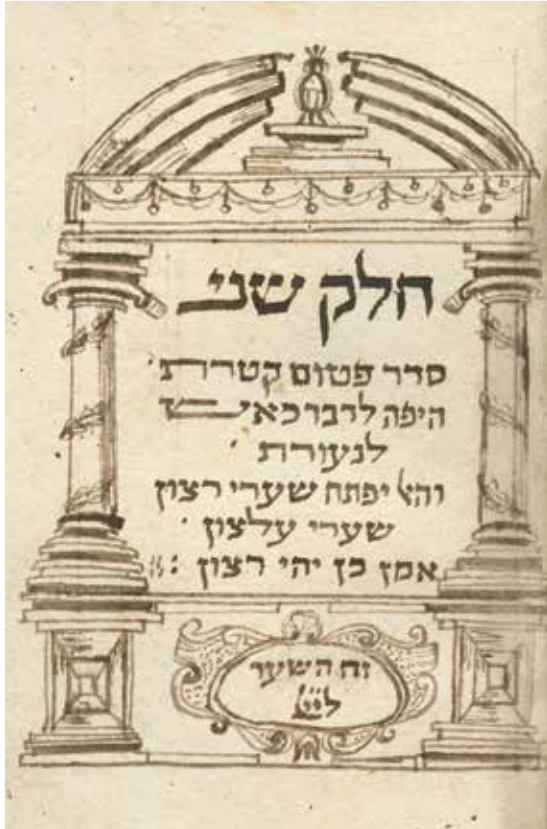 חלק שני
סדר פטום קטרת
היפה לדבר כאש
לנעורת
והאל יפתח שערי רצון
שערי עלצון
אמן כן יהי רצון :
זה השער